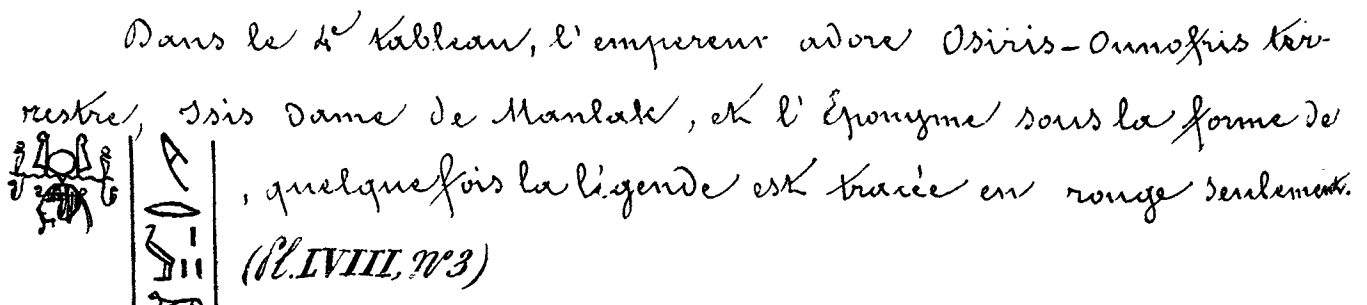 Dans le 4e tableau, l'empereur adore Osiris-Onnofris ter-
restre, Isis Dame de Manlak, et l'Éponyme sous la forme de
, quelquefois la légende est tracée en rouge seulement.
(Pl. LVIII, No 3)